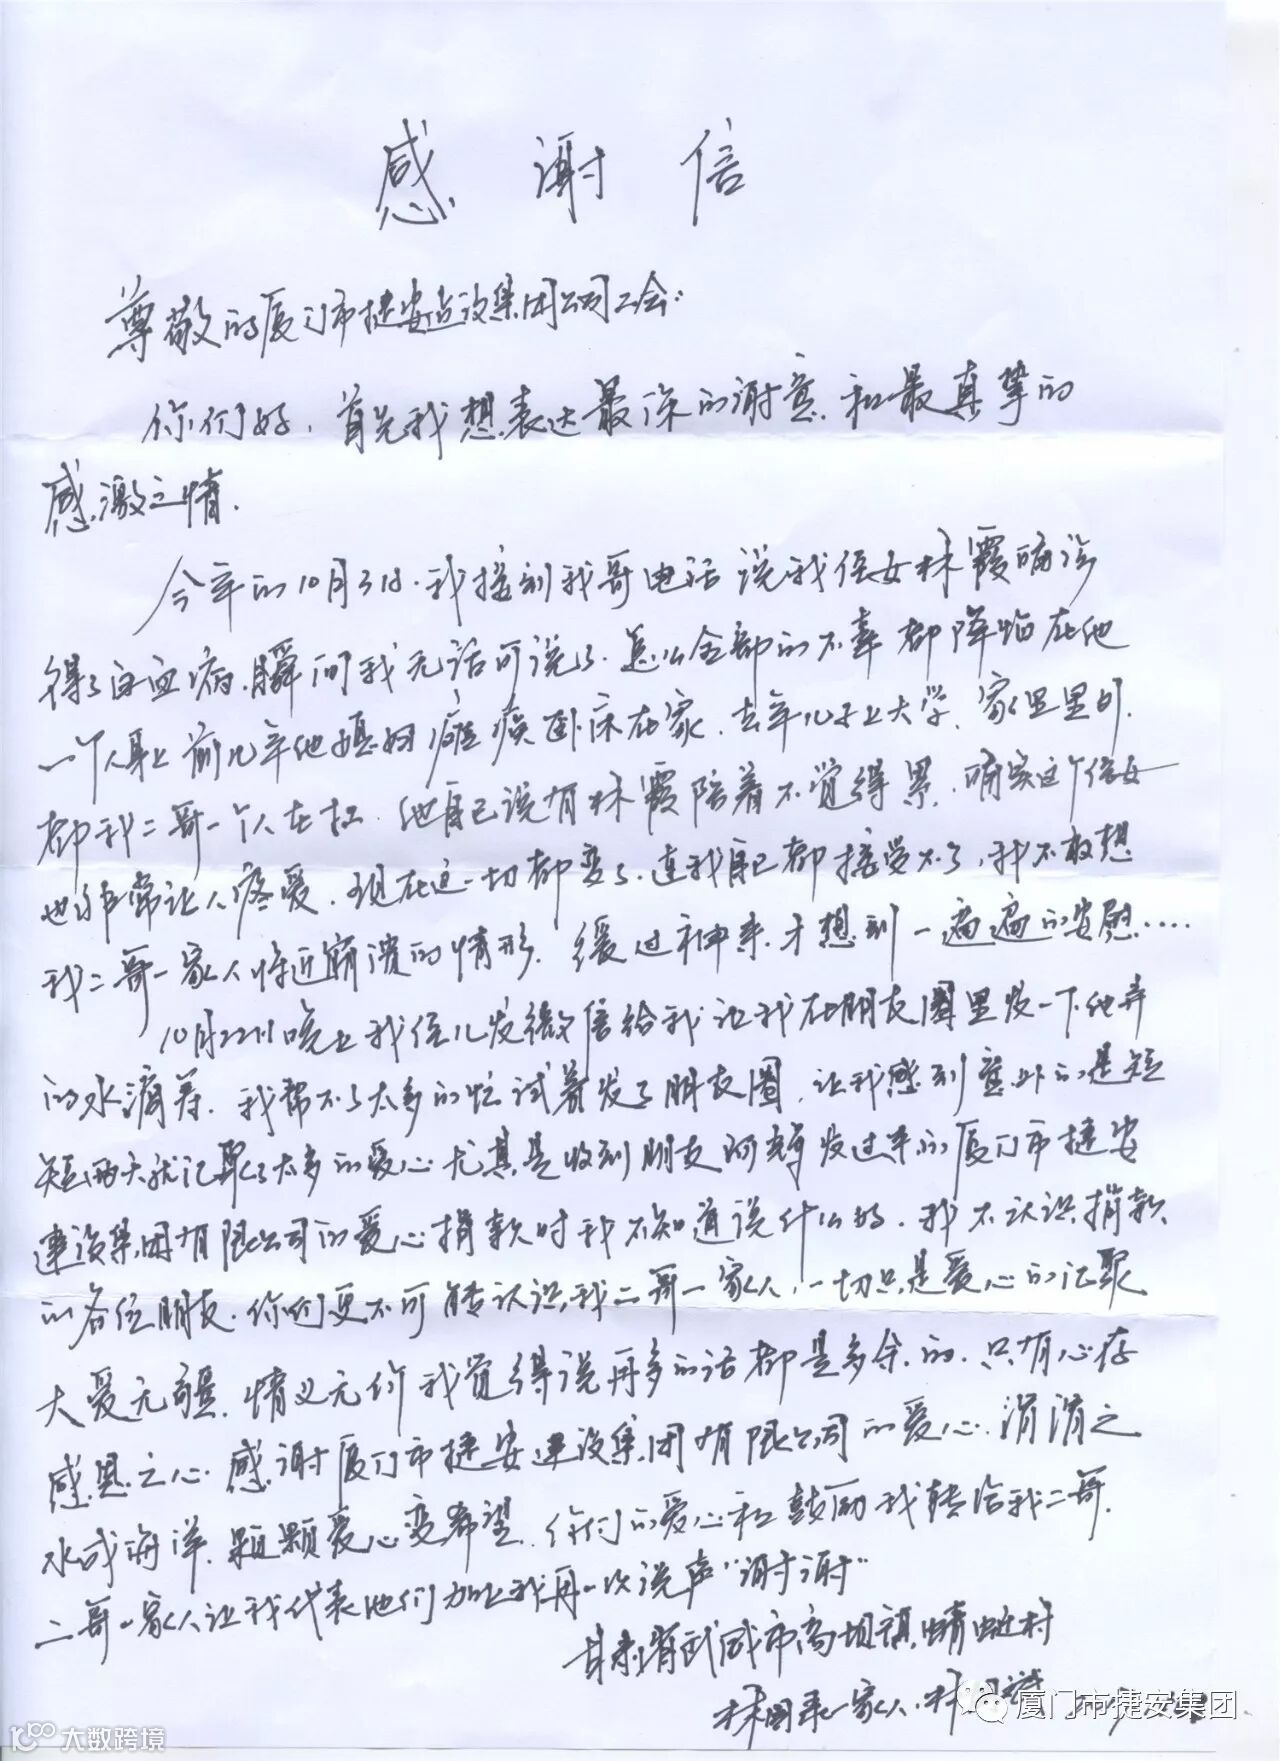 感谢信
尊敬的厦门市捷安建设集团公司工会:
你们好,首先我想表达最深的谢意和最真挚的
感激之情.
今年的10月3日.我接到我哥电话说我侄女林霞确诊
得了白血病,瞬间我无话可说了.怎么全部的不幸都降临在他
一个人身上前几年他媳妇瘫痪卧床在家.去年儿子上大学.家里里外.
都我二哥一个人在扛.他自己说有林霞陪着不觉得累.确实这个侄女
也非常让人疼爱.现在这一切都变了.连我自己都接受不了,我不敢想
我二哥一家人将近崩溃的情形.缓过神来.才想到一遍遍的安慰....
10月22日晚上我侄儿发微信给我让我在朋友圈里发一下他弄
的水滴筹.我帮不了太多的忙试着发了朋友圈,让我感到意外的是短
短两天就汇聚了太多的爱心尤其是收到朋友 发过来的厦门市捷安
建设集团有限公司的爱心捐款时我不知道说什么好.我不认识捐款
的各位朋友.你们更不可能认识我二哥一家人,一切只是爱心的汇聚
大爱无疆.情义无价我觉得说再多的话都是多余的.只有心存
感恩之心.感谢厦门市捷安建设集团有限公司的爱心.涓涓之
水成海洋.颗颗爱心变希望.你们的爱心和鼓励我转给我二哥.
二哥一家人让我代表他们加上我再一次说声"谢谢"
甘肃省武威市高坝镇蜻蜓村
林国 一家人.林
厦门市捷安集团
大数跨境